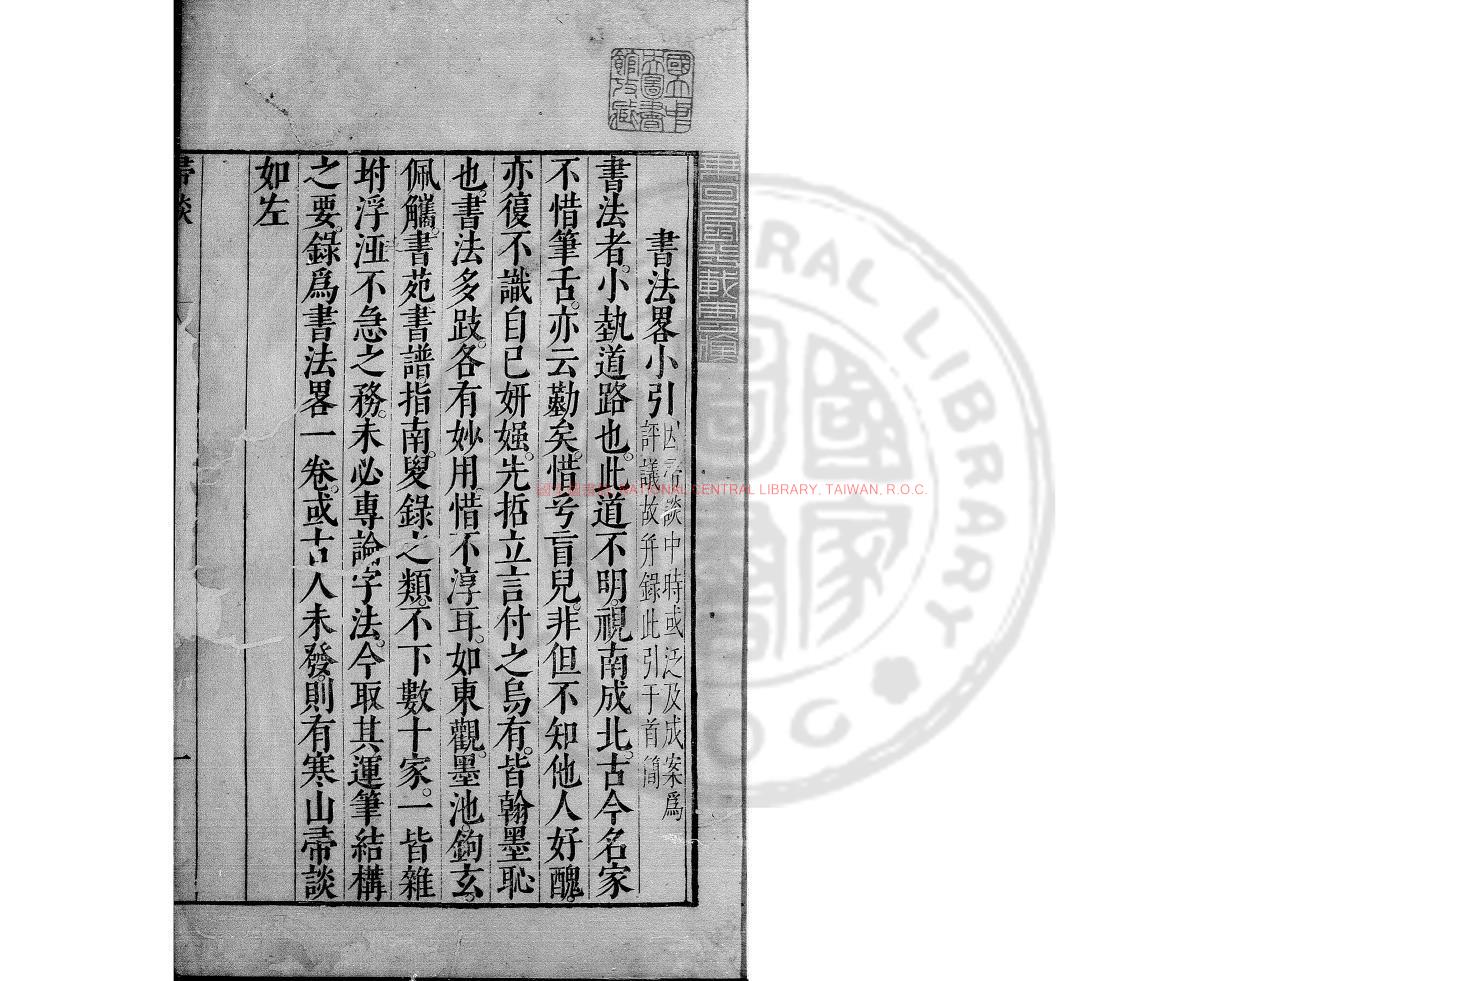 書法畧小引
因帚談中時或泛及成案爲
評議故并錄此引于首簡
書法者小埶道路也此道不明視南成北古今名家
不惜筆舌亦云勤矣惜兮盲兒非但不知他人好醜
亦復不識自已妍媸先哲立言付之烏有皆翰墨恥
也書法多跂各有妙用惜不淳耳如東觀墨池鉤玄
佩觿書苑書譜指南叟錄之類不下數十家一皆雜
坿浮泛不急之務未必專論字法今取其運筆結構
之要錄爲書法畧一卷或古人未發則有寒山帚談
如左
帚談
一
國立中央圖書館收藏
NATIONAL CENTRAL LIBRARY, TAIWAN, R.O.C.